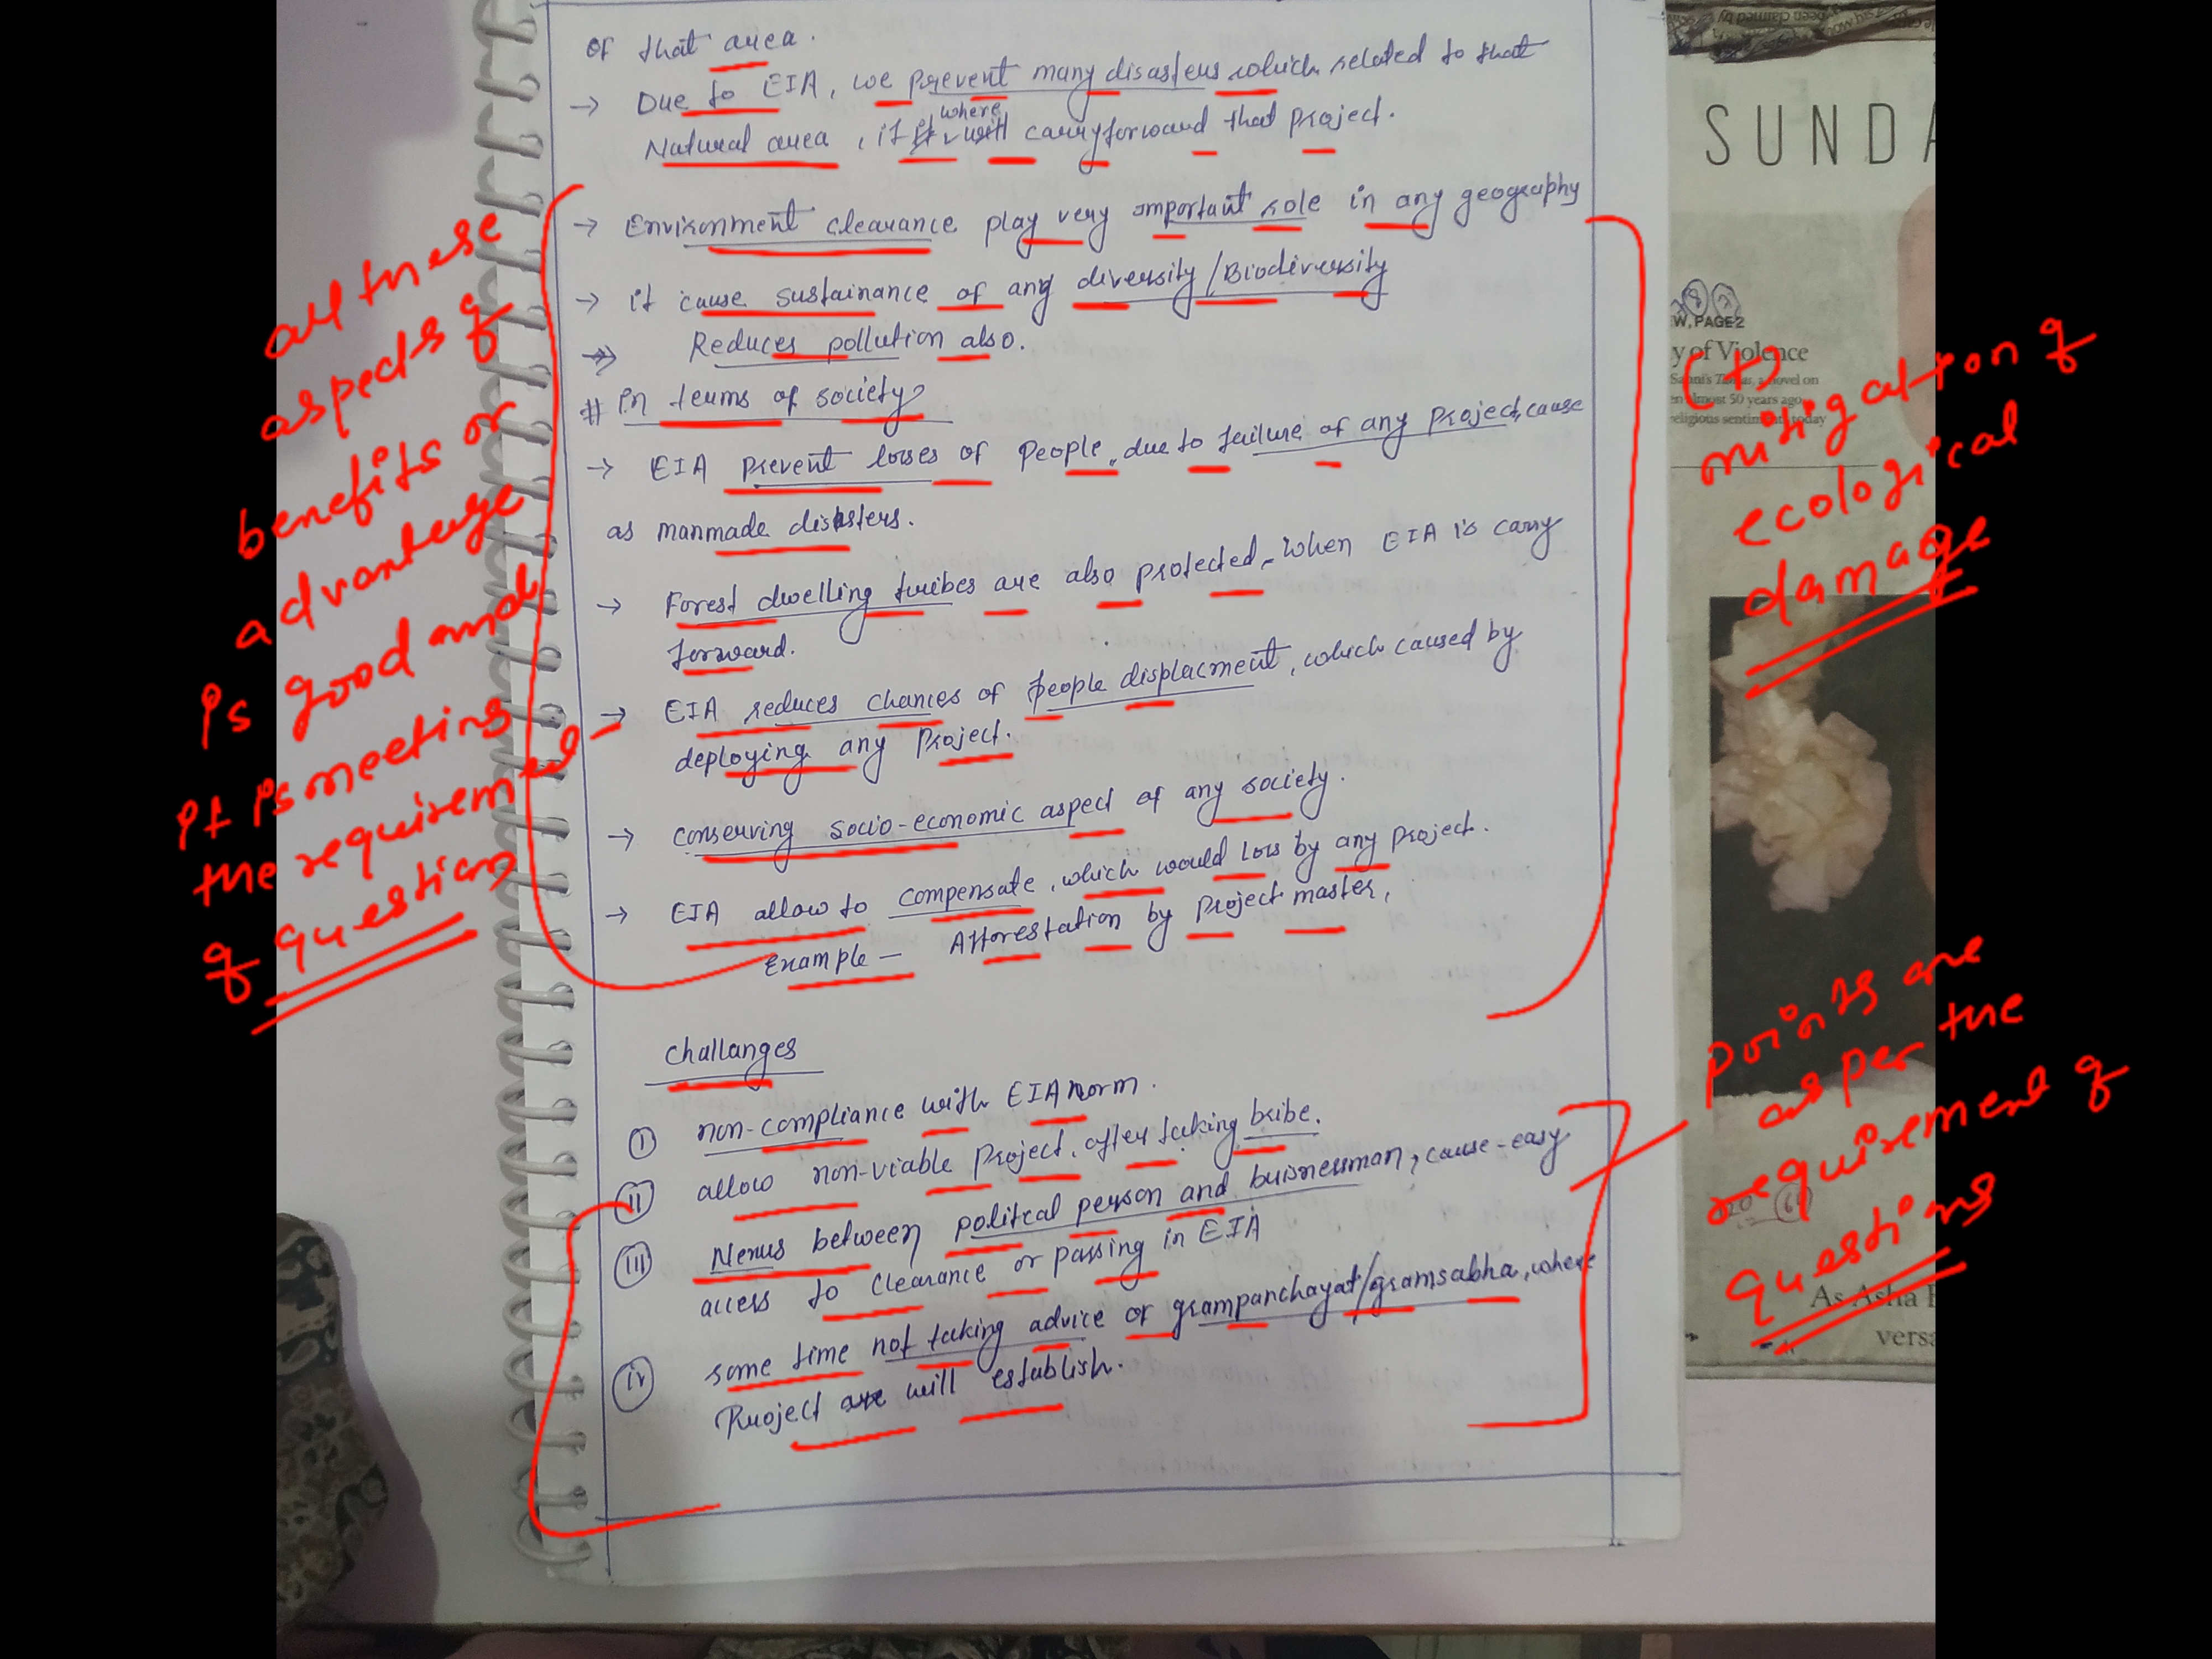 of that area.
→ Due to EIA, we prevent many disasters which related to that
where
Natural area, if it will carryforward that project.
→ Environment clearance play very important role in any geography
→ it cause sustainance of any diversity/Biodiversity
→ Reduces pollution also.
# In terms of society
→ EIA prevent losses of people, due to failure of any project, cause
as manmade disasters.
→ Forest dwelling tribes are also protected, when EIA is carry
forward.
→ EIA reduces chances of people displacment, which caused by
deploying any project.
→ conserving socio-economic aspect of any society.
→ EIA allow to compensate, which would loss by any project.
Example - Afforestation by project master,
challanges
(I) non-compliance with EIA norm.
(II) allow non-viable project, after taking bribe.
(III) Nexus between political person and buisnessman, cause-easy
access to clearance or passing in EIA
(IV) some time not taking advice of grampanchayat/gramsabha, where
Project are will establish.
all these
aspects of
benefits or
advantage
is good and
it is meeting
the requirement
of question
(+)
mitigation of
ecological
damage
points are
as per the
requirement of
questions
SUNDA
W, PAGE 2
y of Violence
novel on
almost 50 years ago
religious sentiment today
As Asha
versa